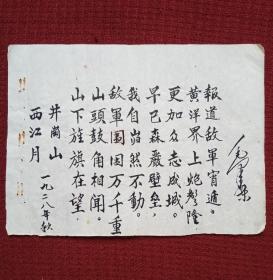 西江月
井崗山
一九二八年秋
山下旌旗在望,
山頭鼓角相聞。
敵軍圍困万千重
我自巋然不動。
早已森嚴壁垒,
更加众志成城。
黄洋界上炮聲隆
報道敵軍宵遁。
毛泽东